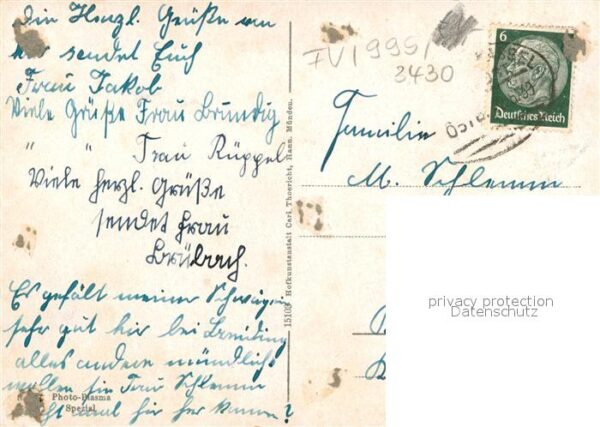 die Herzl. Grüße von
hir sendet Euch
Frau Jakob
Viele Grüße Frau Brundig
" " Frau Rüppel
Viele herzl. Grüße
sendet Frau
Brübach.
Es gefält meiner Schwägerin
sehr gut hir bei
alles andere mündlich
wollen sie Frau Schlemm
nicht mal hir her kommen?
Photo-Plasma
Spezial
15100 Hofkunstanstalt Carl Thoericht, Hann. Münden.
IV/995/
2430
6
Deutsches Reich
Familie
M. Schlemm
privacy protection
Datenschutz